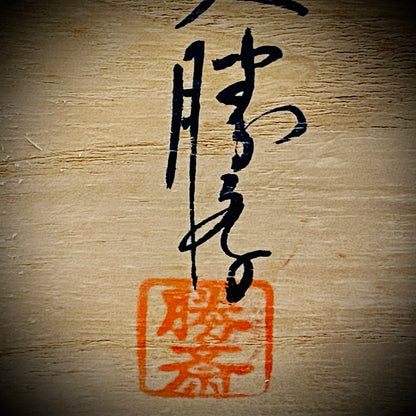 勝斎
勝斎